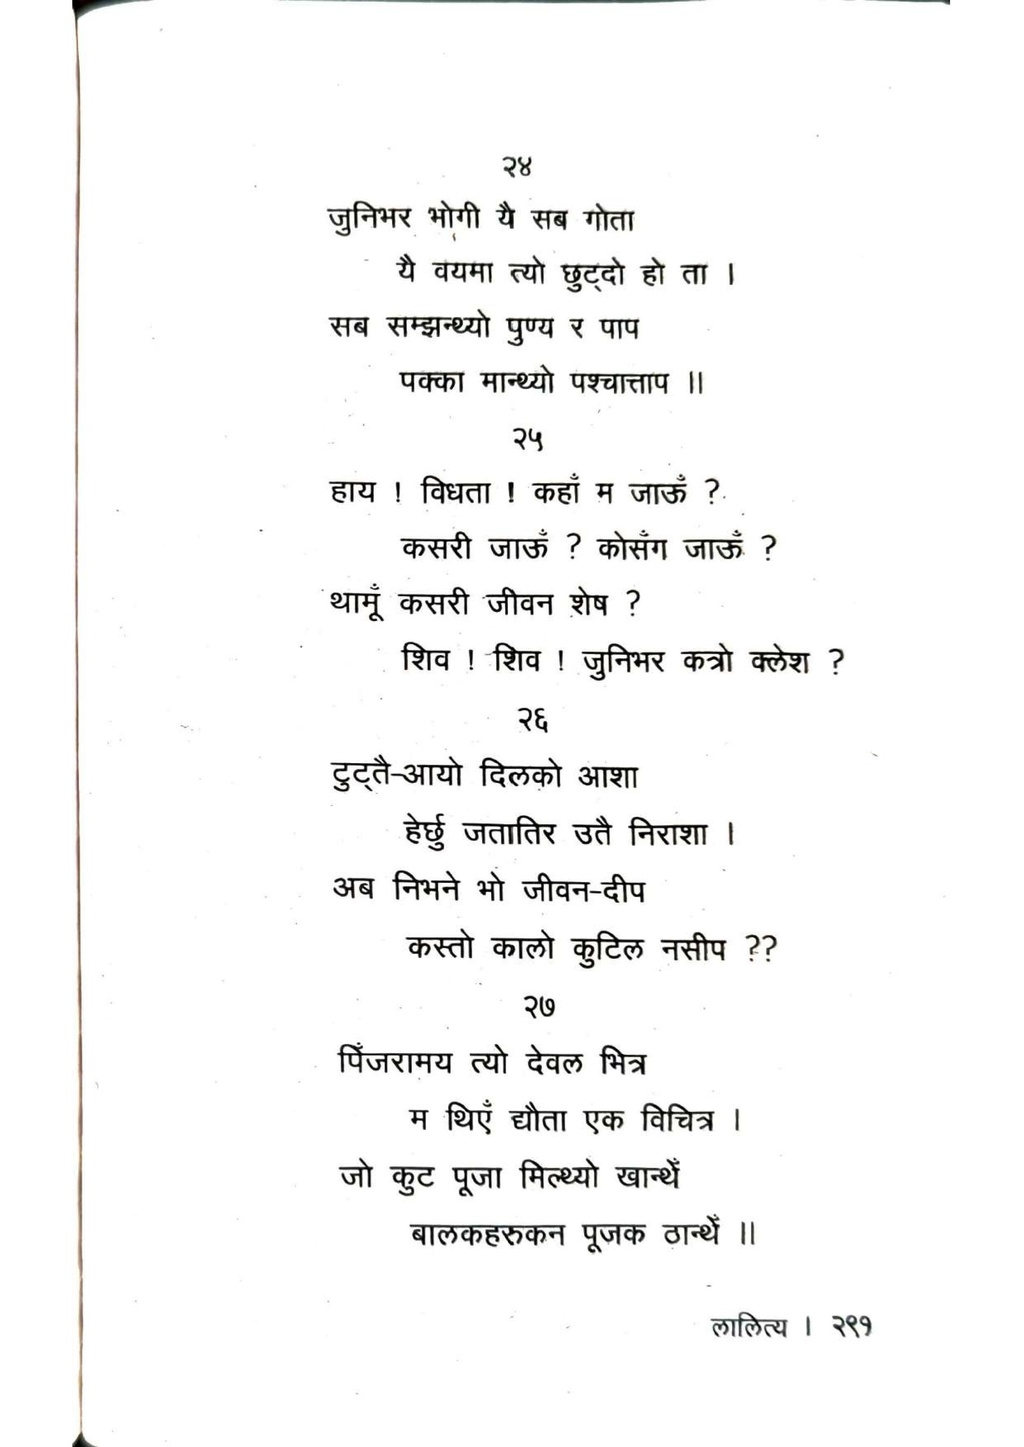 २४
जुनिभर भोगी यै सब गोता
यै वयमा त्यो छुट्दो हो ता ।
सब सम्झन्थ्यो पुण्य र पाप
पक्का मान्थ्यो पश्चात्ताप ॥
२५
हाय ! विधता ! कहाँ म जाऊँ ?
कसरी जाऊँ ? कोसँग जाऊँ ?
थामूँ कसरी जीवन शेष ?
शिव ! शिव ! जुनिभर कत्रो क्लेश ?
२६
टुट्तै-आयो दिलको आशा
हेर्छु जतातिर उतै निराशा ।
अब निभने भो जीवन-दीप
कस्तो कालो कुटिल नसीप ??
२७
पिँजरामय त्यो देवल भित्र
म थिएँ द्यौता एक विचित्र ।
जो कुट पूजा मिल्थ्यो खान्थेँ
बालकहरुकन पूजक ठान्थेँ ॥
लालित्य । २९१